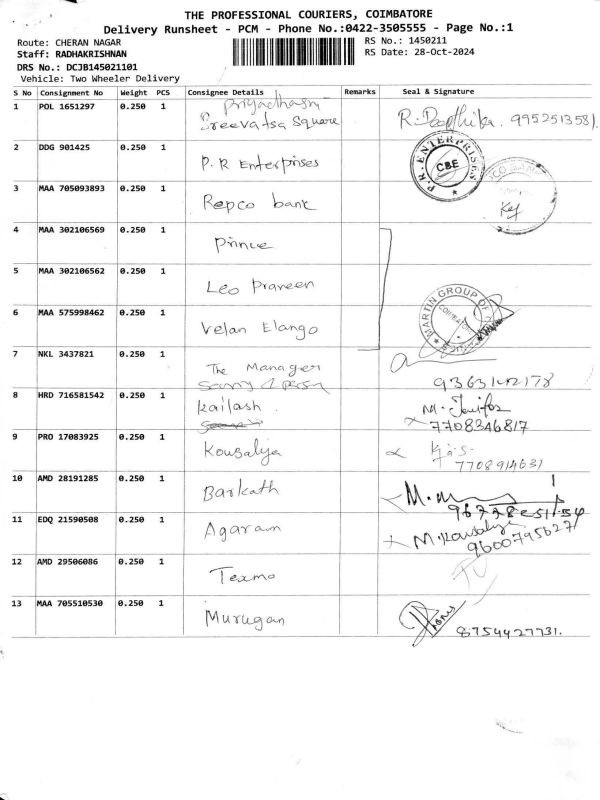 THE PROFESSIONAL COURIERS, COIMBATORE
Delivery Runsheet - PCM - Phone No.:0422-3505555 - Page No.:1
Route: CHERAN NAGAR RS No.: 1450211
Staff: RADHAKRISHNAN RS Date: 28-Oct-2024
DRS No.: DCJB145021101
Vehicle: Two Wheeler Delivery
S No Consignment No Weight PCS Consignee Details Remarks Seal & Signature
Priyadharsni
1 POL 1651297 0.250 1 Sreevatsa Square R. Radhika. 9952513581
2 DDG 901425 0.250 1 P.R Enterprises P.R. ENTERPRISES CBE
3 MAA 705093893 0.250 1 Repco bank
4 MAA 302106569 0.250 1 Prince
5 MAA 302106562 0.250 1 Leo Praveen
6 MAA 575998462 0.250 1 Velan Elango MARTIN GROUP OF
7 NKL 3437821 0.250 1 The Manager
8 HRD 716581542 0.250 1 Kailash M. Jenifer
7708346817
9 PRO 17083925 0.250 1 Kousalya
7708914631
10 AMD 28191285 0.250 1 Barkath
11 EDQ 21590508 0.250 1 Agaram M. Kousalya
9600795627
12 AMD 29506086 0.250 1 Texmo
13 MAA 705510530 0.250 1 Murugan 8754427731.